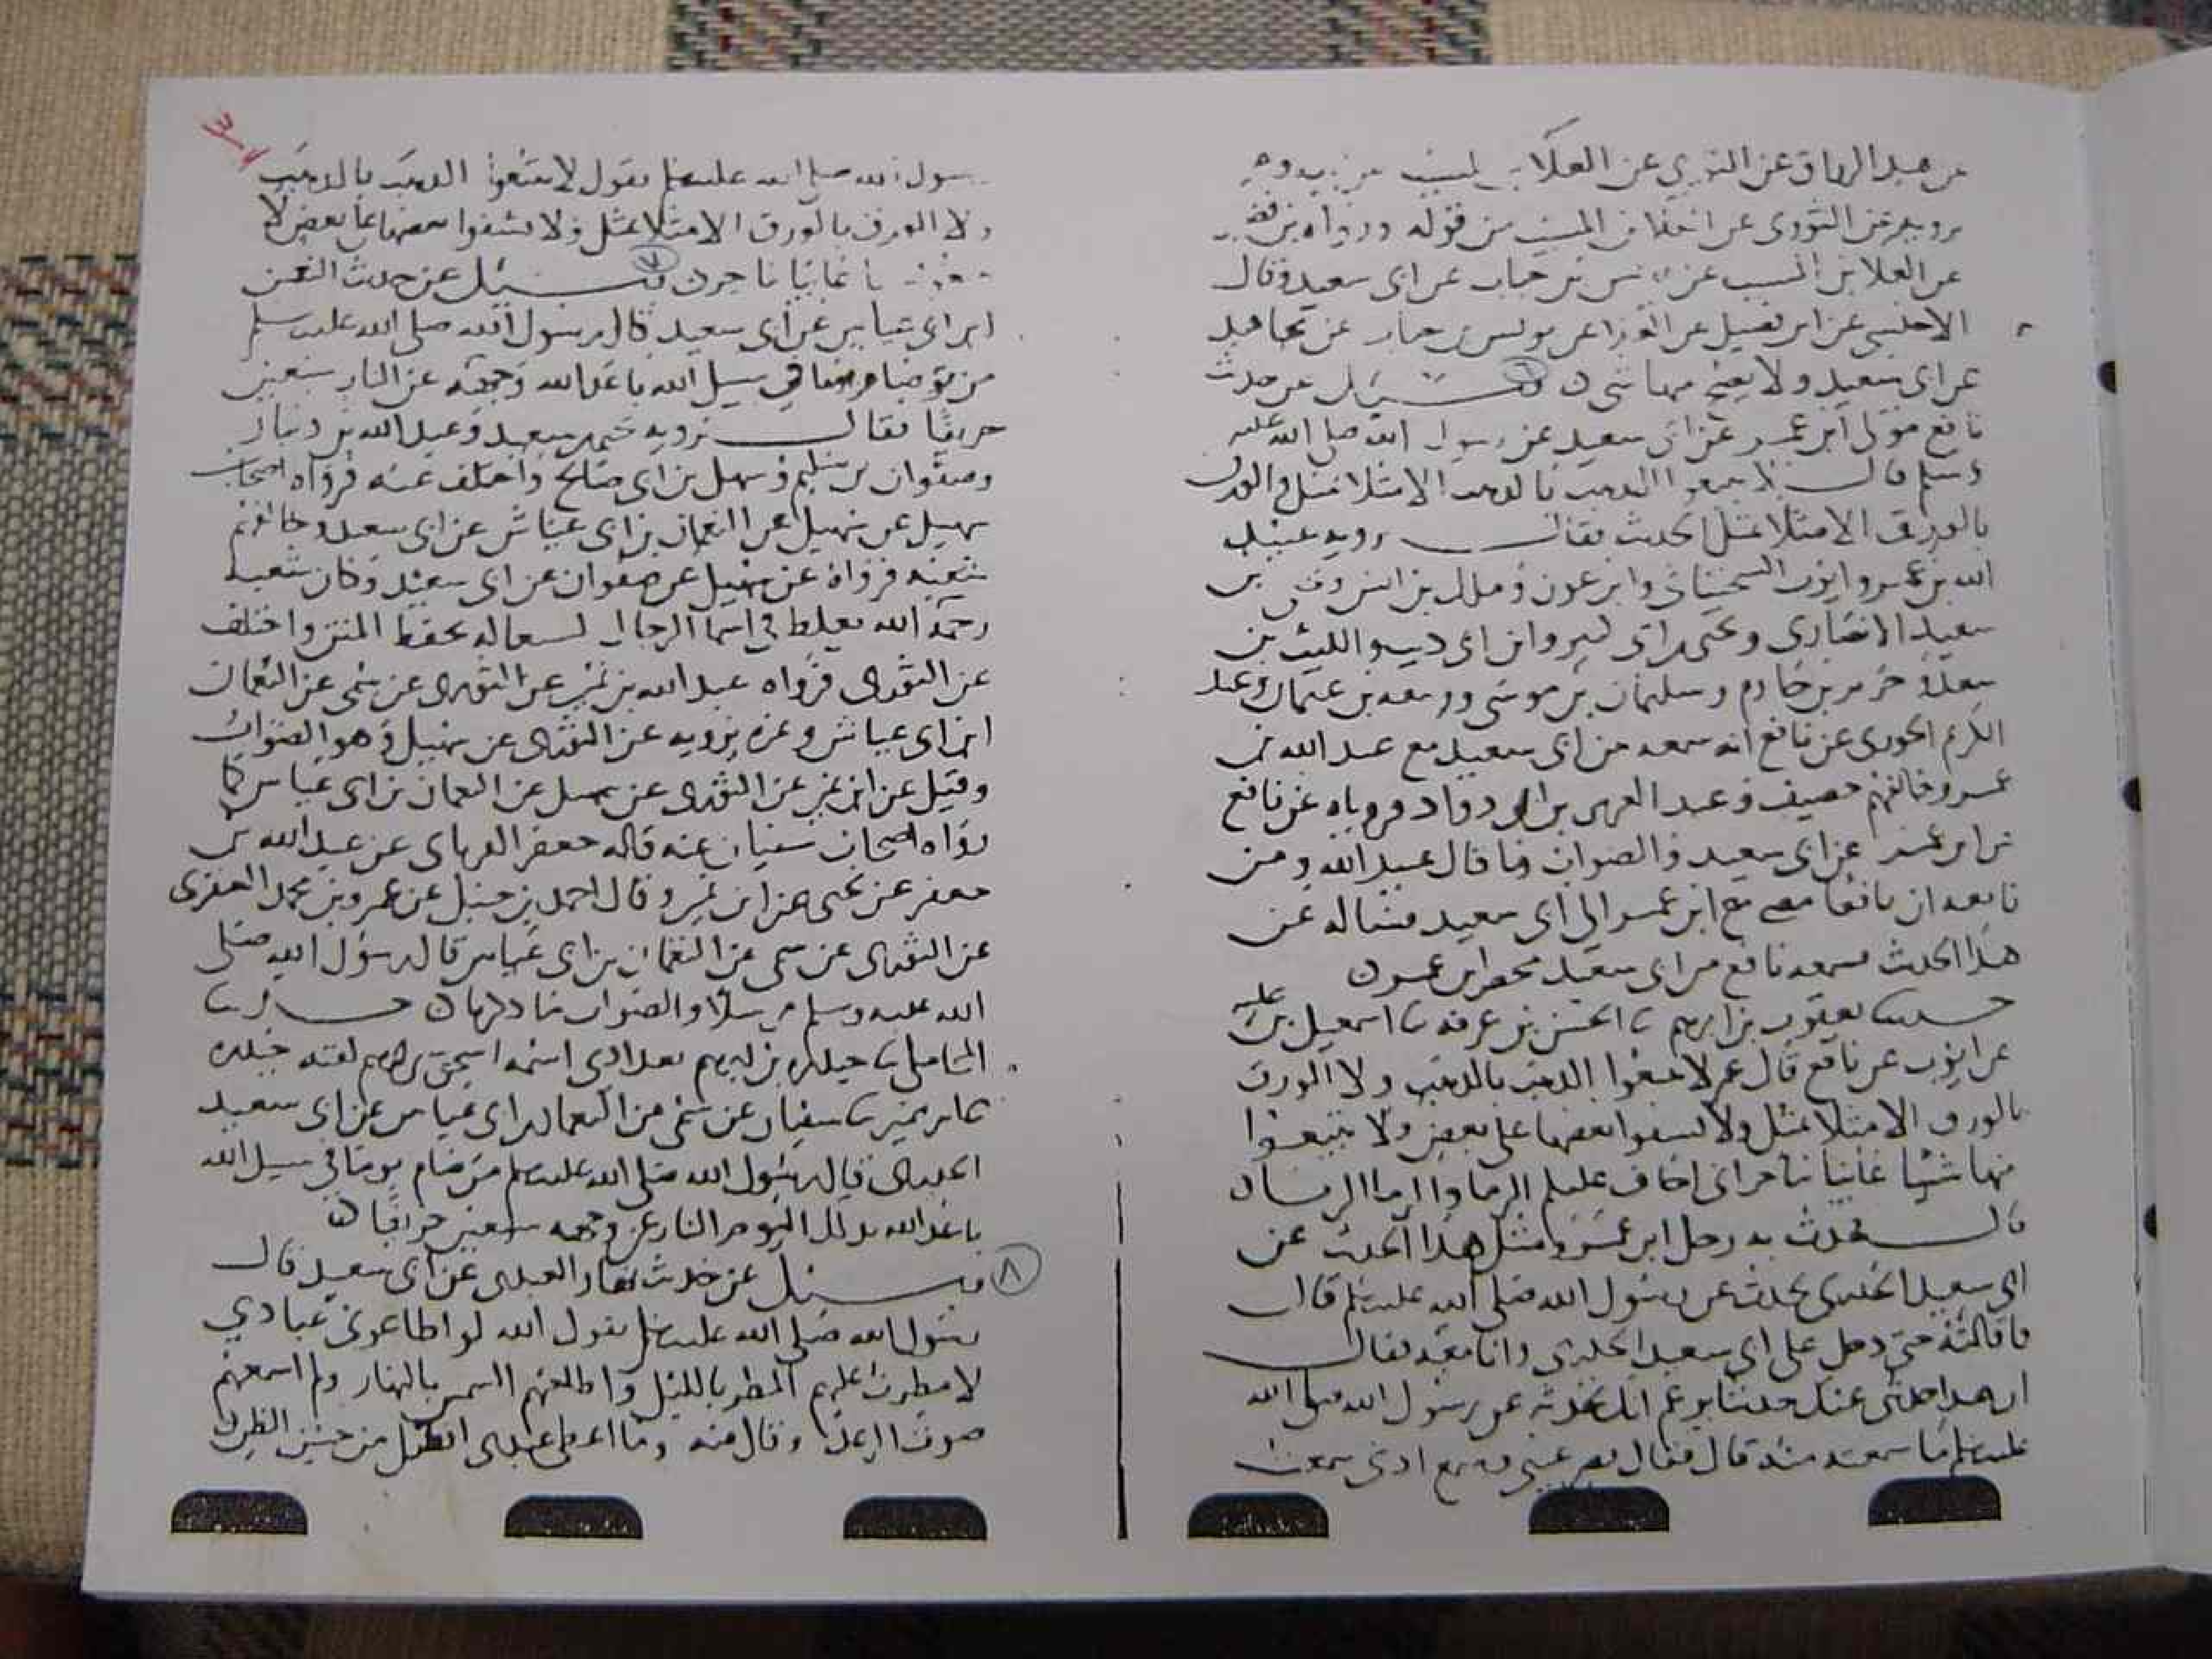 عن عبد الرزاق عن الثوري عن العلا بن المسيب عن
يرويه عن الثوري عن العلا بن المسيب من قوله ورواه بن فضيل
عن العلا بن المسيب عن يونس بن حباب عن ابي سعيد وقال
الاحلسي عن ابن فضيل عن العلا عن يونس بن حباب عن مجاهد
عن ابي سعيد ولا يصح منها شي ه وسئل عن حديث
نافع مولى ابن عمر عن ابي سعيد عن رسول الله صلى الله عليه
وسلم قال لا تبيعوا الذهب بالذهب الا مثلا بمثل والورق
بالورق الا مثلا بمثل الحديث فقال يرويه عبيد
الله بن عمر وايوب السختياني وابن عون ومالك بن انس ويحيى بن
سعيد الانصاري ويحيى بن ابي كثير وابن ابي ذيب والليث بن
سعد وجرير بن حازم وسليمان بن موسى وربيعه بن عثمان وعبد
الكريم الجوزي عن نافع انه سمعه من ابي سعيد مع عبد الله بن
عمر وخالفهم خصيف وعبد العزيز بن ابي رواد فروياه عن نافع
عن ابن عمر عن ابي سعيد والصواب ما قال عبيد الله ومن
تابعه ان نافعا مضى مع ابن عمر الى ابي سعيد فساله عن
هذا الحديث فسمعه نافع من ابي سعيد بحضره ابن عمر ه
حدثنا يعقوب بن ابرهيم ثنا الحسن بن عرفه ثنا اسمعيل بن عليه
عن ايوب عن نافع قال قال عمر لا تبيعوا الذهب بالذهب ولا الورق
بالورق الا مثلا بمثل ولا تشفوا بعضها على بعض ولا تبيعوا
منها شيئا غائبا بناجز اني اخاف عليكم الرما والرما الربا ه
قال فحدث به رجل ابن عمر مثل هذا الحديث عن
ابي سعيد الخدري يحدث عن رسول الله صلى الله عليه وسلم قال
فما قالته حتى دخل على ابي سعيد الخدري وانا معه فقال
ان هذا حدثني عنك حديثا يزعم انك تحدثه عن رسول الله صلى الله
عليه وسلم اسمعته منه قال فقال بصر عيني وسمع اذني سمعت
رسول الله صلى الله عليه وسلم يقول لا تبيعوا الذهب بالذهب
ولا الورق بالورق الا مثلا بمثل ولا تشفوا بعضها على بعض ولا
تبيعوا غائبا بناجز ه ٧ وسئل عن حديث النعمن
ابن ابي عياش عن ابي سعيد قال رسول الله صلى الله عليه وسلم
من صام يوما في سبيل الله باعد الله وجهه عن النار سبعين
خريفا فقال يرويه سمي وسعيد وعبد الله بن دينار
وصفوان بن سليم وسهيل بن ابي صالح واختلف عنه فرواه اصحاب
سهيل عن سهيل عن النعمان بن ابي عياش عن ابي سعيد وخالفهم
شعبه فرواه عن سهيل عن صفوان عن ابي سعيد وكان شعبه
رحمه الله يغلط في اسما الرجال لاشتغاله بحفظ المتن واختلف
عن الثوري فرواه عبد الله بن نمير عن الثوري عن سمي عن النعمان
ابن ابي عياش وغيره يرويه عن الثوري عن سهيل وهو الصواب
وقيل عن ابن نمير عن الثوري عن سهيل عن النعمان بن ابي عياش كما
رواه اصحاب سفيان عنه قاله جعفر الفريابي عن عبد الله بن
جعفر عن يحيى عن ابن نمير وقال احمد بن حنبل عن عمرو بن محمد العنقزي
عن الثوري عن سمي عن النعمان بن ابي عياش قال رسول الله صلى
الله عليه وسلم مرسلا والصواب ما ذكرناه حدثنا
المحاملي ثنا حيدره بن ابرهيم بغدادي اسمه اسحق بن ابرهيم لقبه حيدره
ثنا ابن نمير ثنا سفيان عن سمي عن النعمان بن ابي عياش عن ابي سعيد
الخدري قال رسول الله صلى الله عليه وسلم من صام يوما في سبيل الله
باعد الله بذلك اليوم النار عن وجهه سبعين خريفا ه
٨ وسئل عن حديث العبدي عن ابي سعيد قال
رسول الله صلى الله عليه وسلم يقول الله لو اطاعوني عبادي
لامطرت عليهم المطر بالليل واطلعتهم الشمس بالنهار ولم اسمعهم
صوت الرعد وقال منه وما اعطي عبدي افضل من حسن الظن